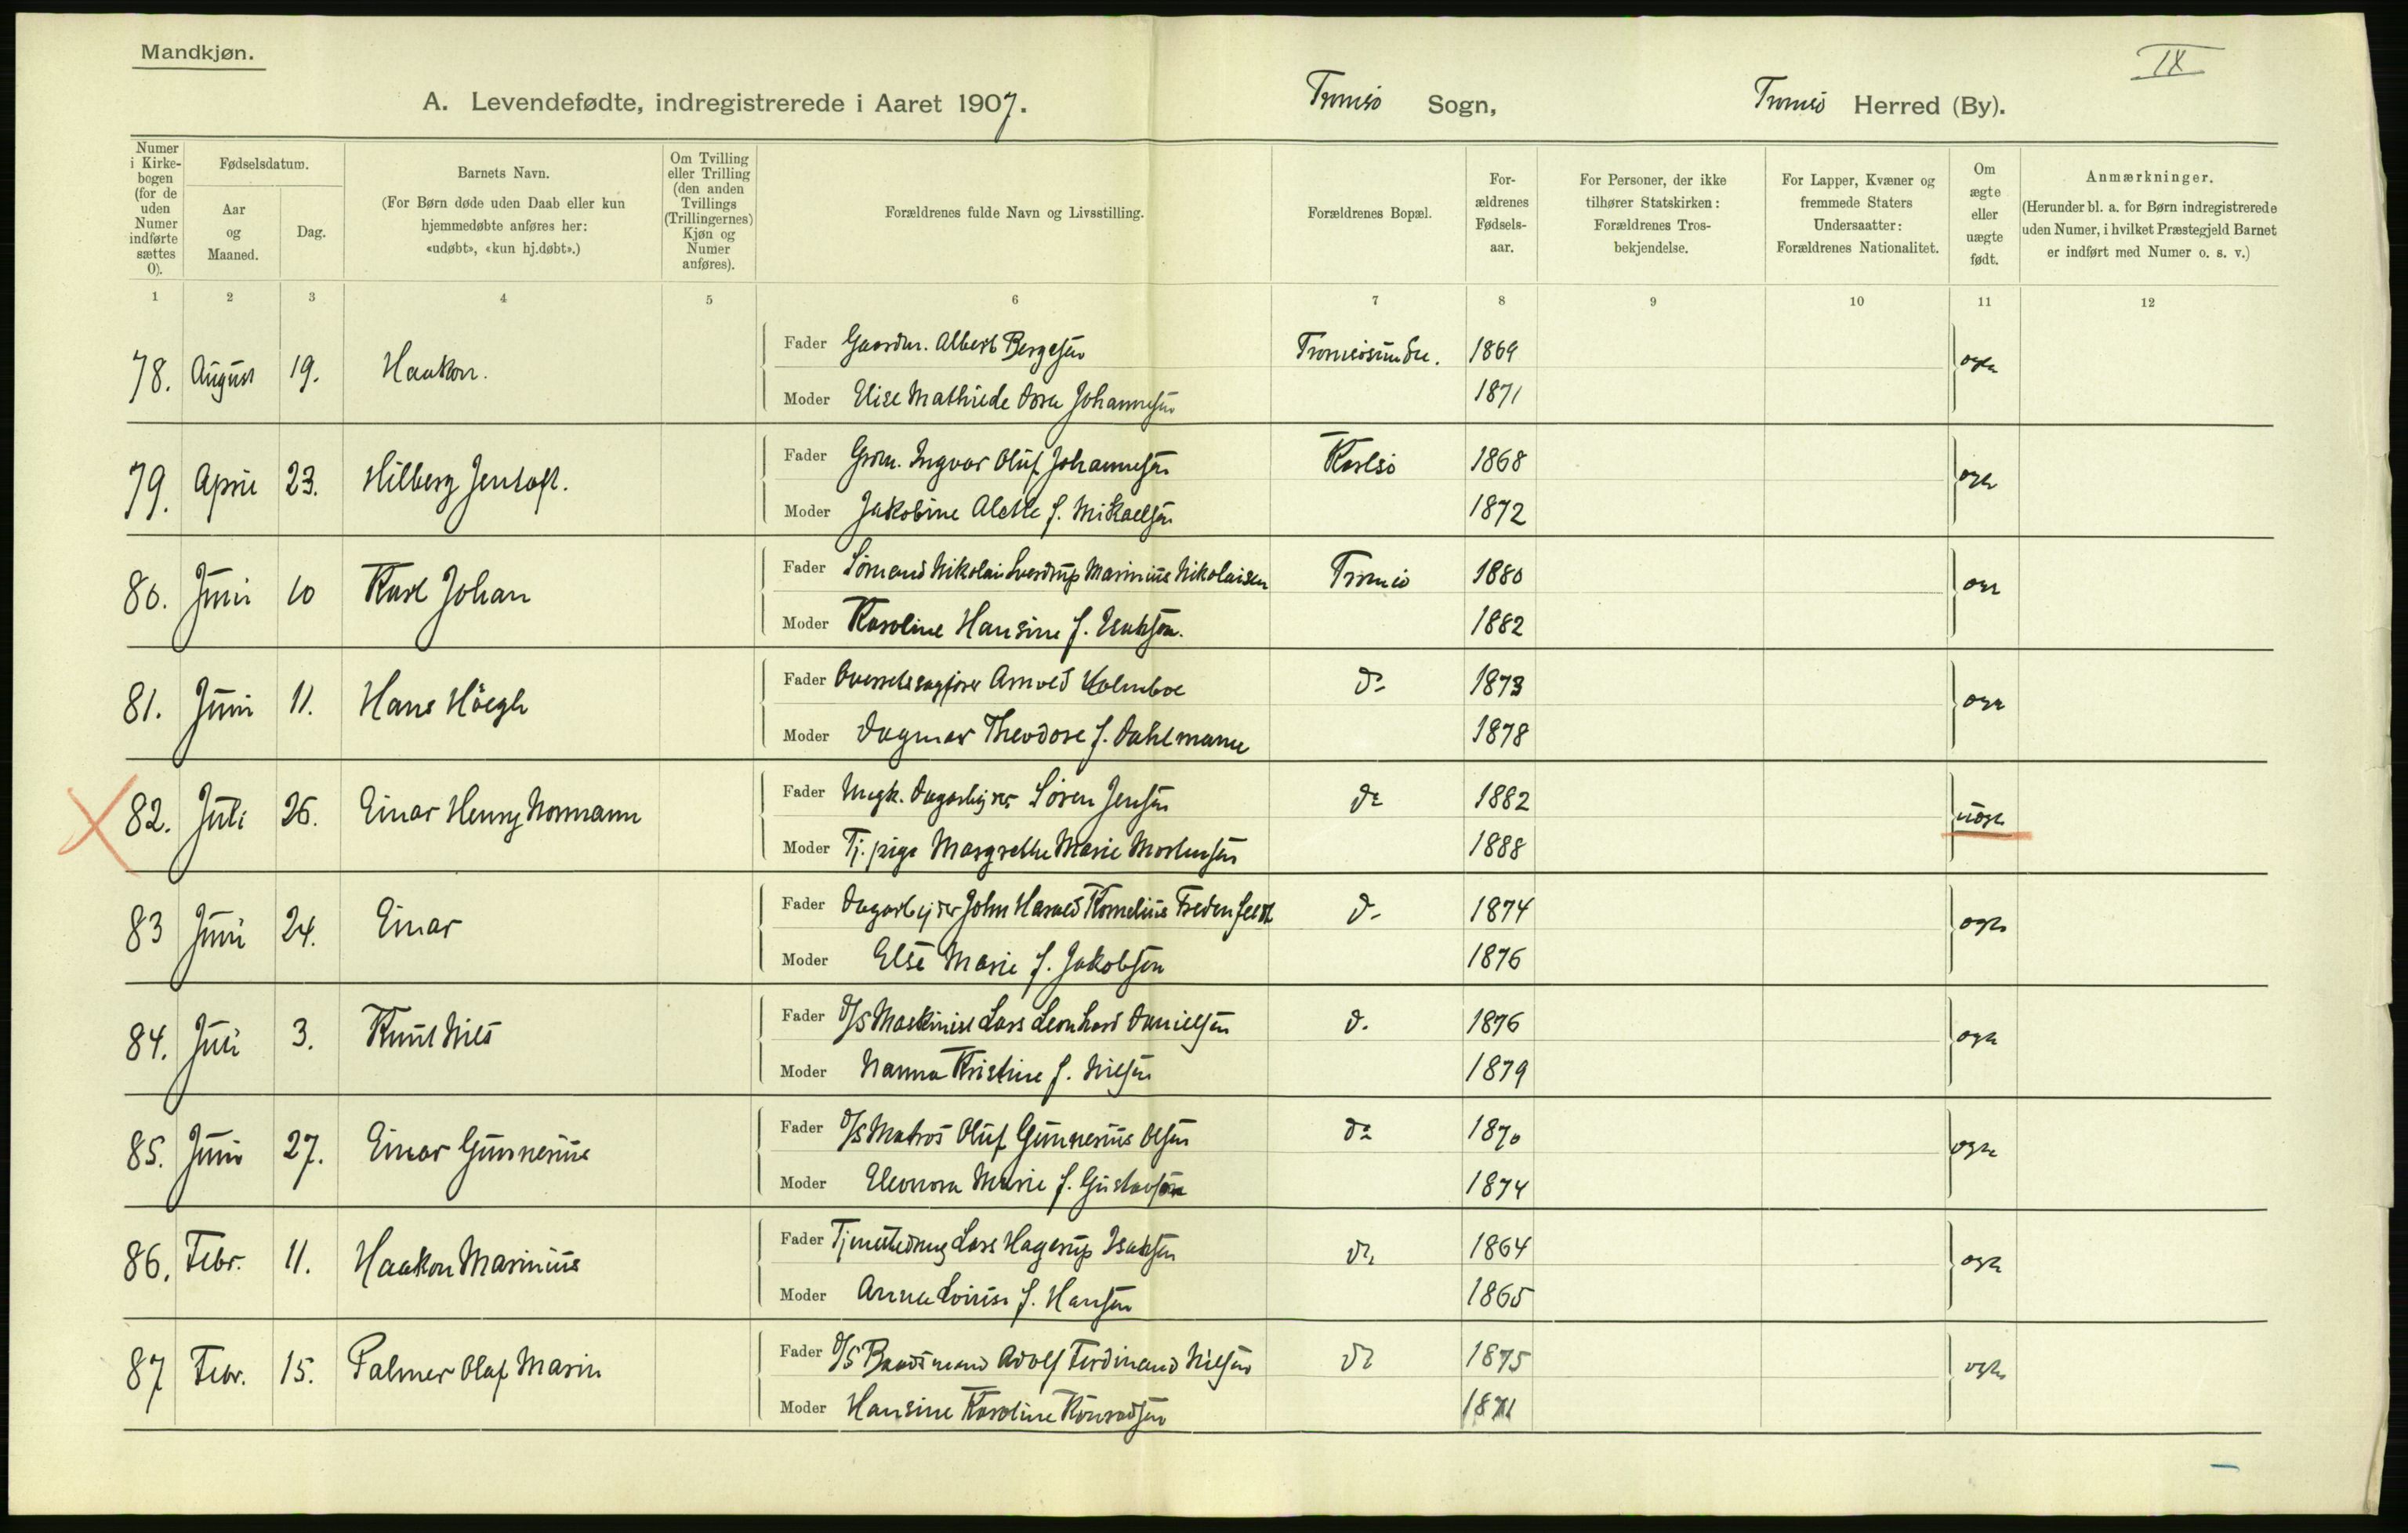 Mandkjøn.
IX
A. Levendefødte, indregistrerede i Aaret 1907.
Tromsö Sogn,
Tromsö Herred (By).
Numer i Kirkebogen (for de uden Numer indførte sættes 0).
Fødselsdatum.
Aar og Maaned.
Dag.
Barnets Navn.
(For Børn døde uden Daab eller kun hjemmedøbte anføres her: «udøbt», «kun hj.døbt».)
Om Tvilling eller Trilling (den anden Tvillings (Trillingernes) Kjøn og Numer anføres).
Forældrenes fulde Navn og Livsstilling.
Forældrenes Bopæl.
Forældrenes Fødselsaar.
For Personer, der ikke tilhører Statskirken: Forældrenes Trosbekjendelse.
For Lapper, Kvæner og fremmede Staters Undersaatter: Forældrenes Nationalitet.
Om ægte eller uægte født.
Anmærkninger.
(Herunder bl. a. for Børn indregistrerede uden Numer, i hvilket Præstegjeld Barnet er indført med Numer o. s. v.)
1 2 3 4 5 6 7 8 9 10 11 12
78. August 19. Haakon. Fader Gaardm. Albert Bergesen Tromsösundet. 1869 ægte
Moder Elise Mathilde Dora Johannesen 1871
79. April 23. Hilberg Jentoft. Fader Grdm. Ingvar Oluf Johannesen Karlsö 1868 ægte
Moder Jakobine Alette f. Mikaelsen 1872
80. Juni 10 Karl Johan Fader Sömand Nikolai Sverdrup Marinius Nikolaisen Tromsö 1880 ægte
Moder Karoline Hansine f. Isaksen. 1882
81. Juni 11. Hans Höegh Fader Overretssagförer Arnold Holmboe do 1873 ægte
Moder Dagmar Theodore f. Dahlmann 1878
82. Juli 26. Einar Henry Normann Fader Ungk. Dagarbejder Sören Jensen do 1882 uægte
Moder Tj. pige Margrethe Marie Mortensen 1888
83 Juni 24. Einar Fader Dagarbejder John Harald Kornelius Fredenfeldt do 1874 ægte
Moder Else Marie f. Jakobsen 1876
84. Juli 3. Knut Nils Fader D/S Maskinist Lars Leonhard Danielsen do 1876 ægte
Moder Nanna Kristine f. Nilsen 1879
85. Juni 27. Einar Gunnerius Fader D/S Matros Oluf Gunnerius Olsen do 1870 ægte
Moder Eleonora Marie f. Gustavsen 1874
86. Febr. 11. Haakon Marinius Fader Lars Hagerup Isaksen do 1864 ægte
Moder Anna Lovise f. Hansen 1865
87 Febr. 15. Palmer Olaf Marin Fader D/S Baadsmand Adolf Ferdinand Nilsen do 1875 ægte
Moder Hansine Karoline Konradsen 1871